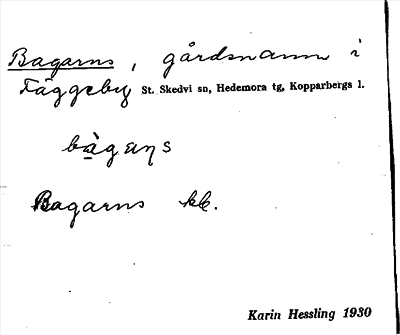 Bagarns, gårdsnamn i
Fäggeby St. Skedvi sn, Hedemora tg, Kopparbergs l.
Bagarns kb.
Karin Hessling 1930